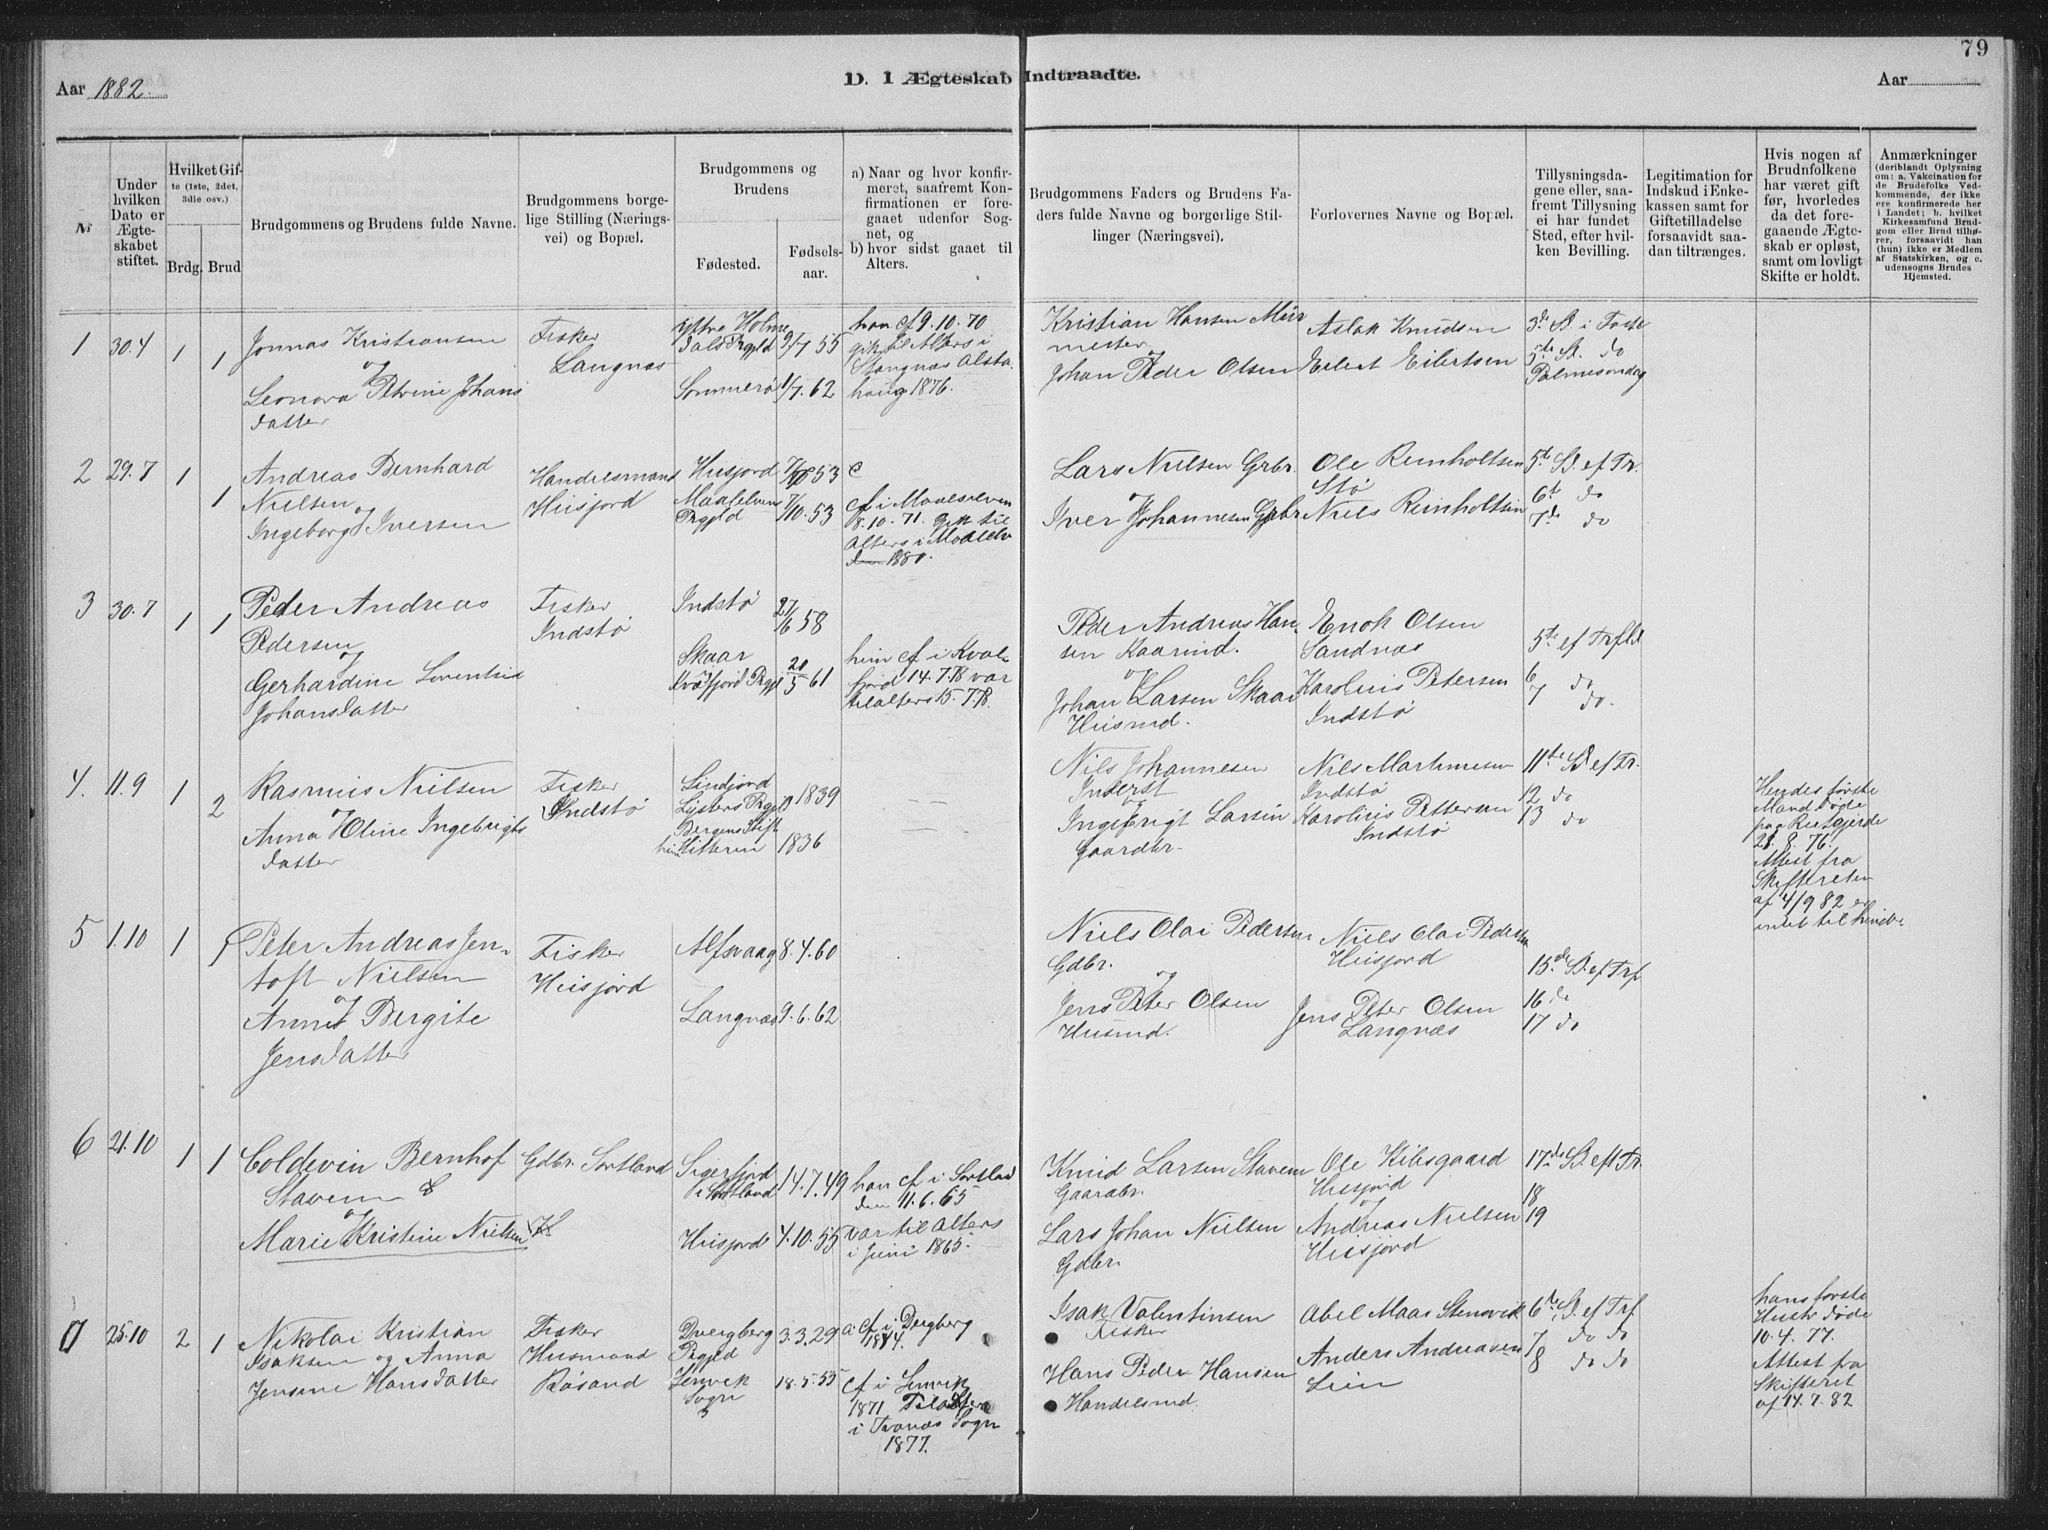 79
Aar 1882.
D. I Ægteskab Indtraadte.
Aar
№
Under hvilken Dato er Ægteskabet stiftet.
Hvilket Gifte (1ste, 2det, 3die osv.)
Brdg. Brud
Brudgommens og Brudens fulde Navne.
Brudgommens borgelige Stilling (Næringsvei) og Bopæl.
Brudgommens og Brudens
Fødested.
Fødselsaar.
a) Naar og hvor konfirmeret, saafremt Konfirmationen er foregaaet udenfor Sognet, og
b) hvor sidst gaaet til Alters.
Brudgommens Faders og Brudens Faders fulde Navne og borgerlige Stillinger (Næringsvei).
Forlovernes Navne og Bopæl.
Tillysningsdagene eller, saafremt Tillysning ei har fundet Sted, efter hvilken Bevilling.
Legitimation for Indskud i Enkekassen samt for Giftetilladelse forsaavidt saadan tiltrænges.
Hvis nogen af Brudnfolkene har været gift før, hvorledes da det foregaaende Ægteskab er opløst, samt om lovligt Skifte er holdt.
Anmærkninger
(deriblandt Oplysning om: a. Vakcination for de Brudefolks Vedkommende, der ikke ere konfirmerede her i Landet; b. hvilket Kirkesamfund Brudgom eller Brud tilhører, forsaavidt han (hun) ikke er Medlem af Statskirken, og c. udensogns Brudes Hjemsted.
1 30.4 1 1
Jonnas Kristiansen
og
Leonora Petrine Johans
datter
Fisker
Langnæs
Yttre Holme
dals Prgjld 9/7 55
Sommerø 1/7. 62
han cf 9.10.70
gik til Alters i
Stangnæs Alsta
houg 1876.
Kristian Hansen Mur
mester
og
Johan Peder Olsen
Aslak Knudsen
Eilert Eilertsen
3de S. i Faste
5te S. do
Palmesøndag
2 29.7 1 1
Andreas Bernhard
Nielsen
og
Ingeborg Iversen
Handelsmand
Husjord
Husjord 53
Maalselven
Prgjld 7/10.53
c
cf i Maalselven
8.10.71. gik til
Alters i Maalselv
1880.
Lars Nielsen Grbr.
og
Iver Johannesen Gbr
Ole Reinholtsen
Stø
Niels Reinholtsen
5te S. ef Tr.
6te do
7de do
3 30.7 1 1
Peder Andreas
Pedersen
og
Gerhardine Lorentine
Johansdatter
Fisker
Indstø
Indstø 27/6 58
Skaar
Kvæfjord Prgjd 20/5 61
hun cf i Kvæ
fjord 14.7.78 var
til alters 15.7.78.
Peder Andreas Han
sen Kaarmd.
og
Johan Larsen Skaar
Husmd.
Enok Olsen
Sandnæs
Karolius Petersen
Indstø
5te ef Trfld
6 do
7 do.
4. 11.9 1 2
Rasmus Nielsen
og
Anna Oline Ingebrigts
datter
Fisker
Indstø
Bergens Stift
1839
hun Hitteren 1836
Nils Johannesen
Inderst
og
Ingebrigt Larsen
Gaardbr.
Nils Martinusen
Indstø
Karolius Pettersen
Indstø
11te S. ef Tr.
12 do
13 do
Hendes første
Mand døde
paa
28.8.76.
Attest fra
Skifteretten
af 4/9 82 er
intet til hinder
5 1.10 1 1
Peter Andreas Jen-
toft Nielsen
og
Anne Bergite
Jensdatter
Fisker
Husjord
Alfsvaag 8.4.60
Langnæs 9.6.62
Niels Olai Pedersen
Gdbr.
og
Jens Peter Olsen
Husmd.
Niels Olai Pedersen
Husjord
Jens Peter Olsen
Langnæs
15de S. ef Trf
16 do
17 do
6 21.10 1 1
Coldevin Bernhof
Stavem
og
Marie Kristine Nielsen
Gdbr. Sortland
Sigerfjord
i Sortland 14.7.49
Husjord 4.10.55
han cf i Sortland
den 11.6.65
var til Alters
i Juni 1865.
Knud Larsen Stavem
Gaardbr.
Lars Johan Nielsen
Gdbr.
Ole Kibsgaard
Husjord
og
Andreas Nielsen
Husjord
17de S. eft Tr.
18
19
7 25.10 2 1
Nikolai Kristian
Isaksen og Anna
Jensine Hansdatter
Fisker
Husmand
Røsand
Dvergberg
Prgjld 3.3.29
Lenvik
Sogn 18.5.55
a. cf i Dvergberg
1844.
cf i Lenvik
1871 Til Alters
i Tranøs Sogn
1877.
Isak Valentinsen
Fisker
Hans Peder Hansen
Handelsmd.
Abel Maas Stensvik
Anders Andreasen
Lein
6te S. ef Trf
7 do do
8 do do
hans første
Hustr døde
10.4.77.
Attest fra
Skifteret
af 14.7.82